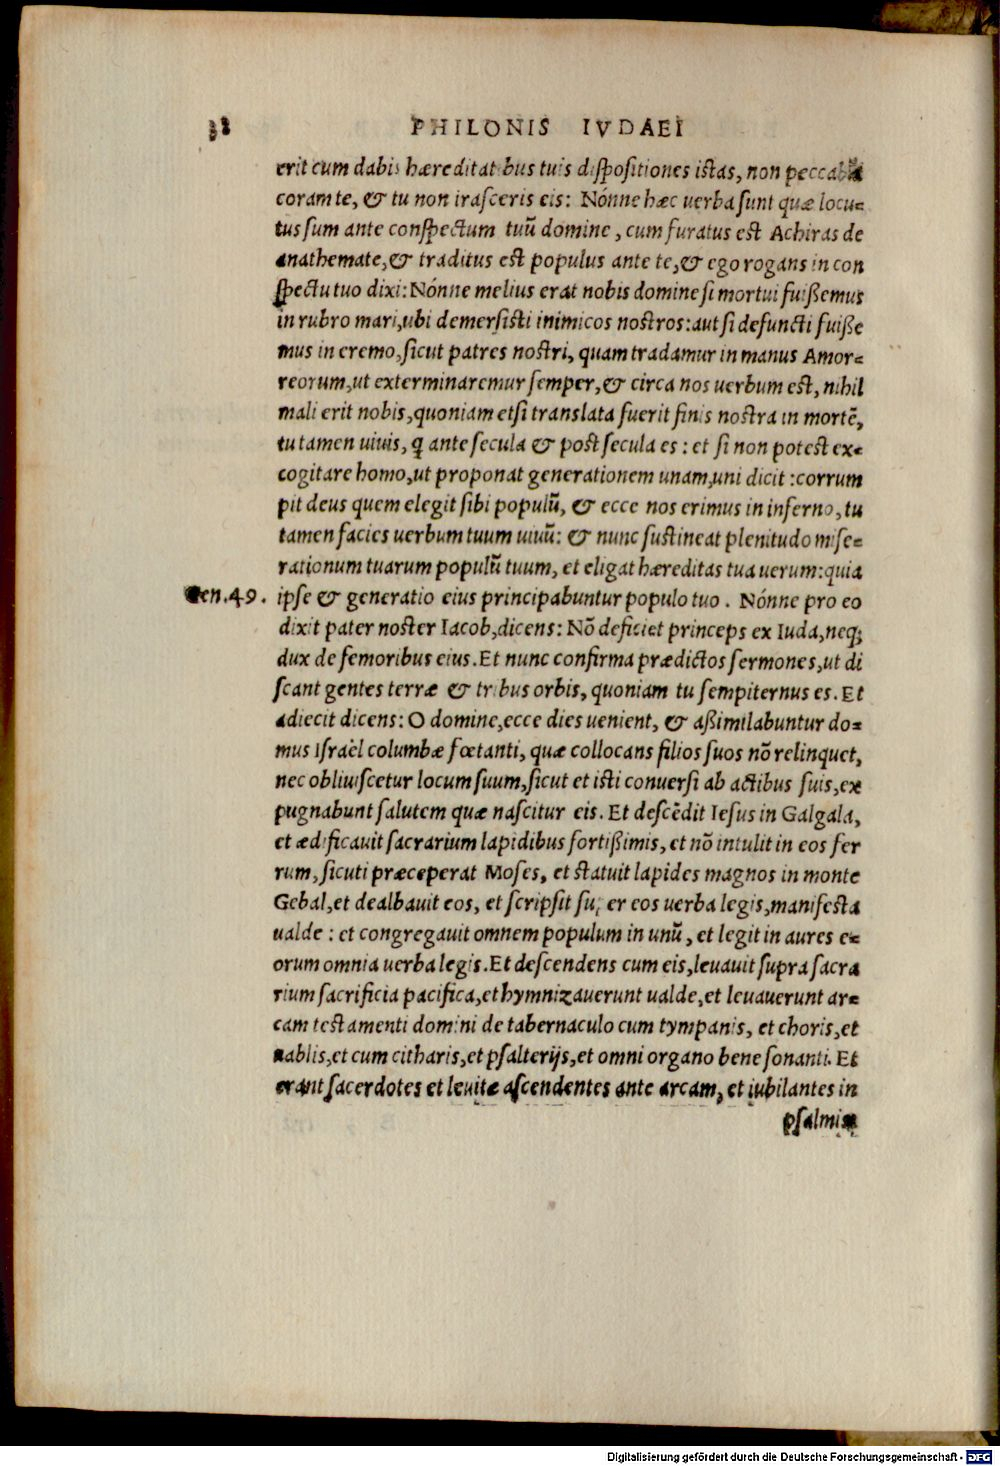 32 PHILONIS IVDAEI
erit cum dabis hæreditatibus tuis dispositiones istas, non peccabūt
coram te, & tu non irasceris eis: Nónne hæc uerba sunt quæ locu-
tus sum ante conspectum tuū domine, cum furatus est Achiras de
anathemate, & traditus est populus ante te, & ego rogans in con
spectu tuo dixi: Nónne melius erat nobis domine si mortui fuissemus
in rubro mari, ubi demersisti inimicos nostros: aut si defuncti fuisse
mus in eremo, sicut patres nostri, quam tradamur in manus Amor-
reorum, ut exterminaremur semper, & circa nos uerbum est, nihil
mali erit nobis, quoniam etsi translata fuerit finis nostra in mortē,
tu tamen uiuis, q ante secula & post secula es: et si non potest ex-
cogitare homo, ut proponat generationem unam, uni dicit: corrum
pit deus quem elegit sibi populū, & ecce nos erimus in inferno, tu
tamen facies uerbum tuum uiuū: & nunc sustineat plenitudo mise-
rationum tuarum populū tuum, et eligat hæreditas tua uerum: quia
Gen. 49. ipse & generatio eius principabuntur populo tuo. Nónne pro eo
dixit pater noster Iacob, dicens: Nō deficiet princeps ex Iuda, neq;
dux de femoribus eius. Et nunc confirma prædictos sermones, ut di
scant gentes terræ & tribus orbis, quoniam tu sempiternus es. Et
adiecit dicens: O domine, ecce dies uenient, & assimilabuntur do-
mus Israël columbæ fœtanti, quæ collocans filios suos nō relinquet,
nec obliuiscetur locum suum, sicut et isti conuersi ab actibus suis, ex
pugnabunt salutem quæ nascitur eis. Et descēdit Iesus in Galgala,
et ædificauit sacrarium lapidibus fortissimis, et nō intulit in eos fer
rum, sicuti præceperat Moses, et statuit lapides magnos in monte
Gebal, et dealbauit eos, et scripsit super eos uerba legis, manifesta
ualde: et congregauit omnem populum in unū, et legit in aures e-
orum omnia uerba legis. Et descendens cum eis, leuauit supra sacra
rium sacrificia pacifica, et hymnizauerunt ualde, et leuauerunt ar-
cam testamenti domini de tabernaculo cum tympanis, et choris, et
nablis, et cum citharis, et psalterijs, et omni organo bene sonanti. Et
erant sacerdotes et leuitæ ascendentes ante arcam, et iubilantes in
psalmis
Digitalisierung gefördert durch die Deutsche Forschungsgemeinschaft - DFG